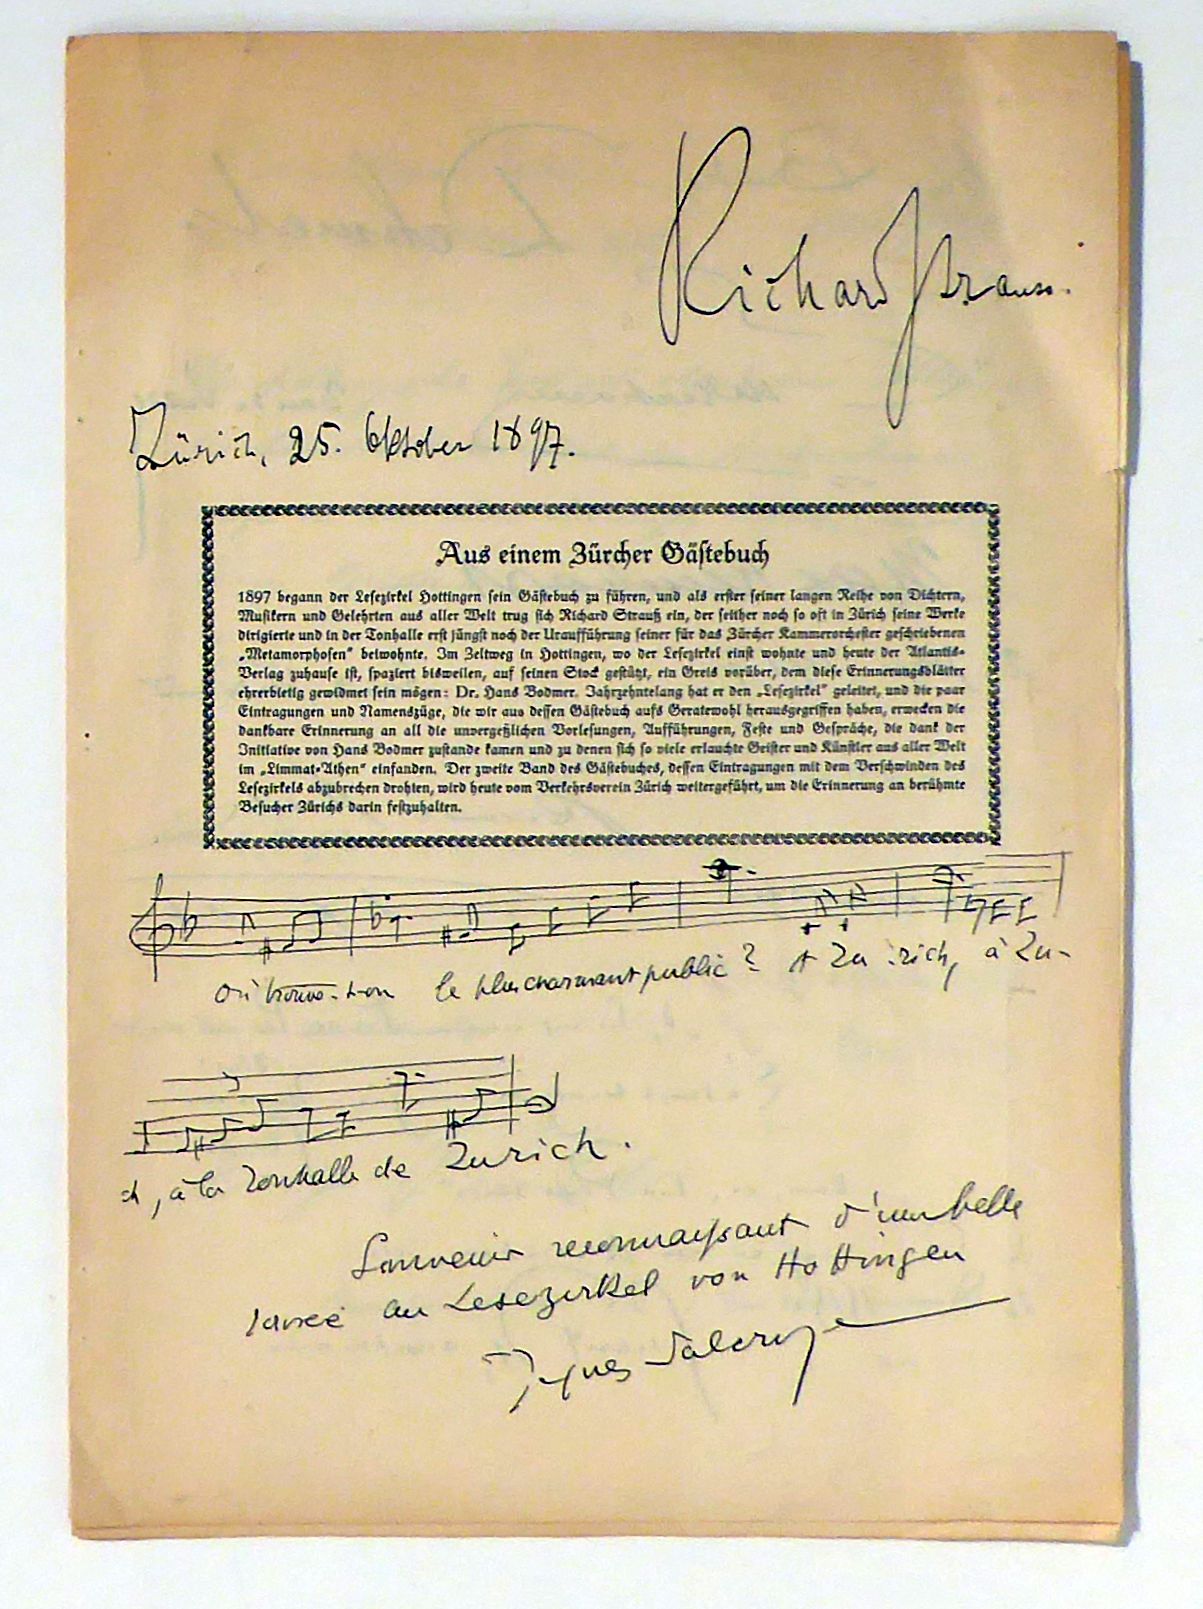 Richard Strauss.
Zürich, 25. Oktober 1897.
Aus einem Zürcher Gästebuch
1897 begann der Lesezirkel Hottingen sein Gästebuch zu führen, und als erster seiner langen Reihe von Dichtern,
Musikern und Gelehrten aus aller Welt trug sich Richard Strauß ein, der seither noch so oft in Zürich seine Werke
dirigierte und in der Tonhalle erst jüngst noch der Uraufführung seiner für das Zürcher Kammerorchester geschriebenen
„Metamorphosen“ beiwohnte. Im Zeltweg in Hottingen, wo der Lesezirkel einst wohnte und heute der Atlantis-
Verlag zuhause ist, spaziert bisweilen, auf seinen Stock gestützt, ein Greis vorüber, dem diese Erinnerungsblätter
ehrerbietig gewidmet sein mögen: Dr. Hans Bodmer. Jahrzehntelang hat er den „Lesezirkel“ geleitet, und die paar
Eintragungen und Namenszüge, die wir aus dessen Gästebuch aufs Geratewohl herausgegriffen haben, erwecken die
dankbare Erinnerung an all die unvergeßlichen Vorlesungen, Aufführungen, Feste und Gespräche, die dank der
Initiative von Hans Bodmer zustande kamen und zu denen sich so viele erlauchte Geister und Künstler aus aller Welt
im „Limmat-Athen“ einfanden. Der zweite Band des Gästebuches, dessen Eintragungen mit dem Verschwinden des
Lesezirkels abzubrechen drohten, wird heute vom Verkehrsverein Zürich weitergeführt, um die Erinnerung an berühmte
Besucher Zürichs darin festzuhalten.
Où trouve-t-on le plus charmant public? A Zu-rich, à Zu-
ch, à la Tonhalle de Zurich.
Souvenir reconnaissant d'une belle
au Lesezirkel von Hottingen